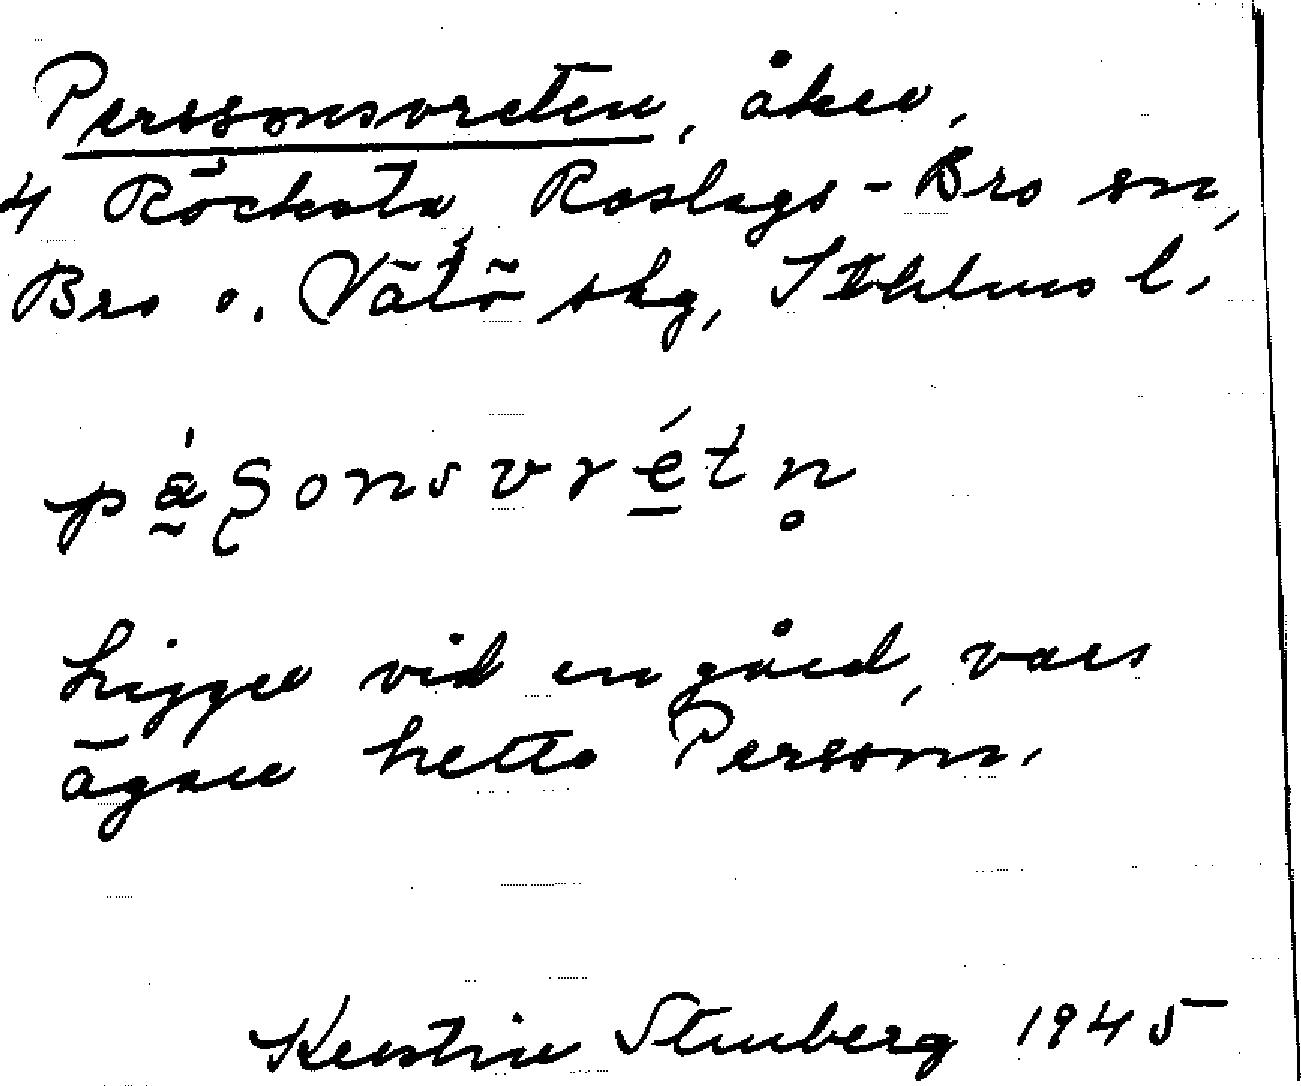 Perssonsvreten, åker,
4 Röcksta, Roslags-Bro sn,
Bro o. Vätö skg, Sthlms l.
pæ̀ʂonsvrétn̥
Ligger vid en gård, vars
ägare hette Persson.
Kerstin Stenberg 1945